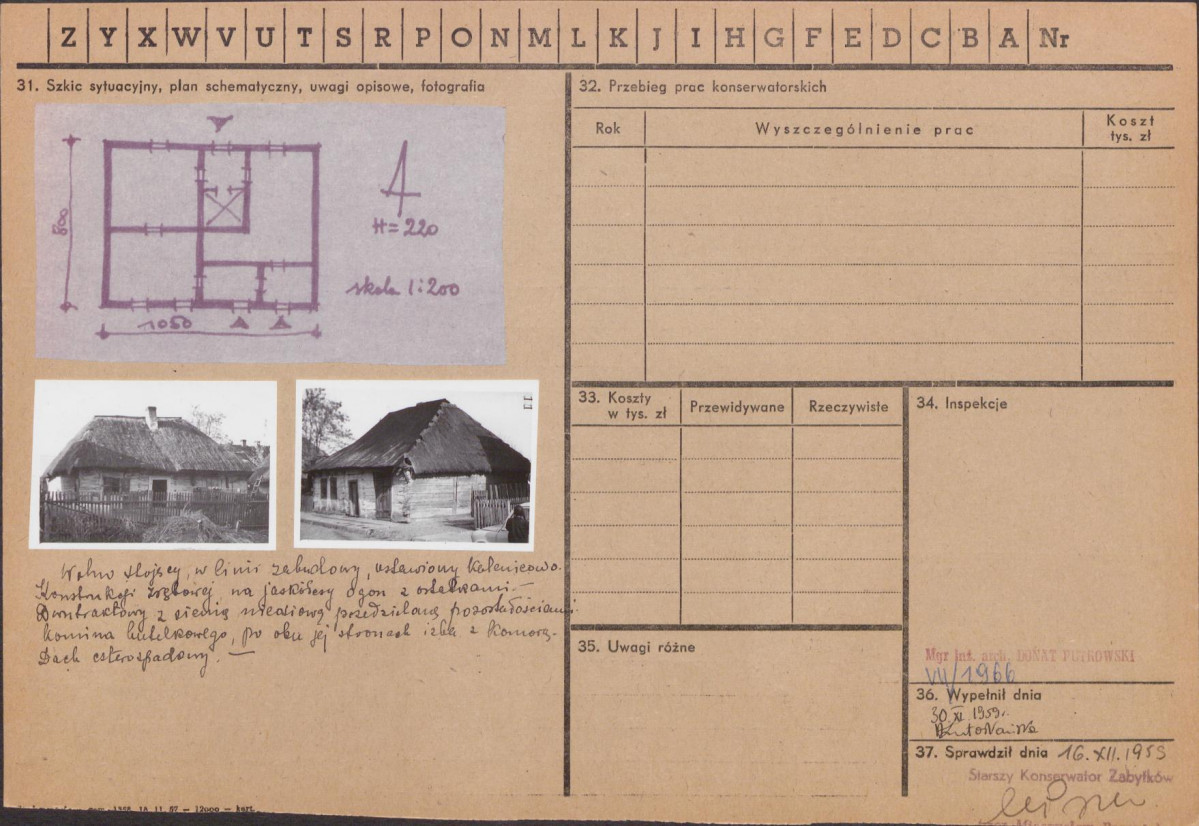 Z Y X W V U T S R P O N M L K J I H G F E D C B A Nr
31. Szkic sytuacyjny, plan schematyczny, uwagi opisowe, fotografia
800
H = 220
skala 1:200
1050
11
Wolno stojący, w linii zabudowy, ustawiony kalenicowo.
Konstrukcji zrębowej, na jaskółczy ogon z ostatkami
Dwutraktowy z sienią przedzieloną pozostałościami
komina butelkowego, po obu jej stronach izba z komorą.
Dach czterospadowy. —
32. Przebieg prac konserwatorskich
Rok
Wyszczególnienie prac
Koszt
tys. zł
33. Koszty
w tys. zł
Przewidywane
Rzeczywiste
34. Inspekcje
Mgr inż. arch. DONAT PUTKOWSKI
VII/1966
35. Uwagi różne
36. Wypełnił dnia
30 XI 1959r.
37. Sprawdził dnia 16.XII.1959
Starszy Konserwator Zabytków
12000 — kart.